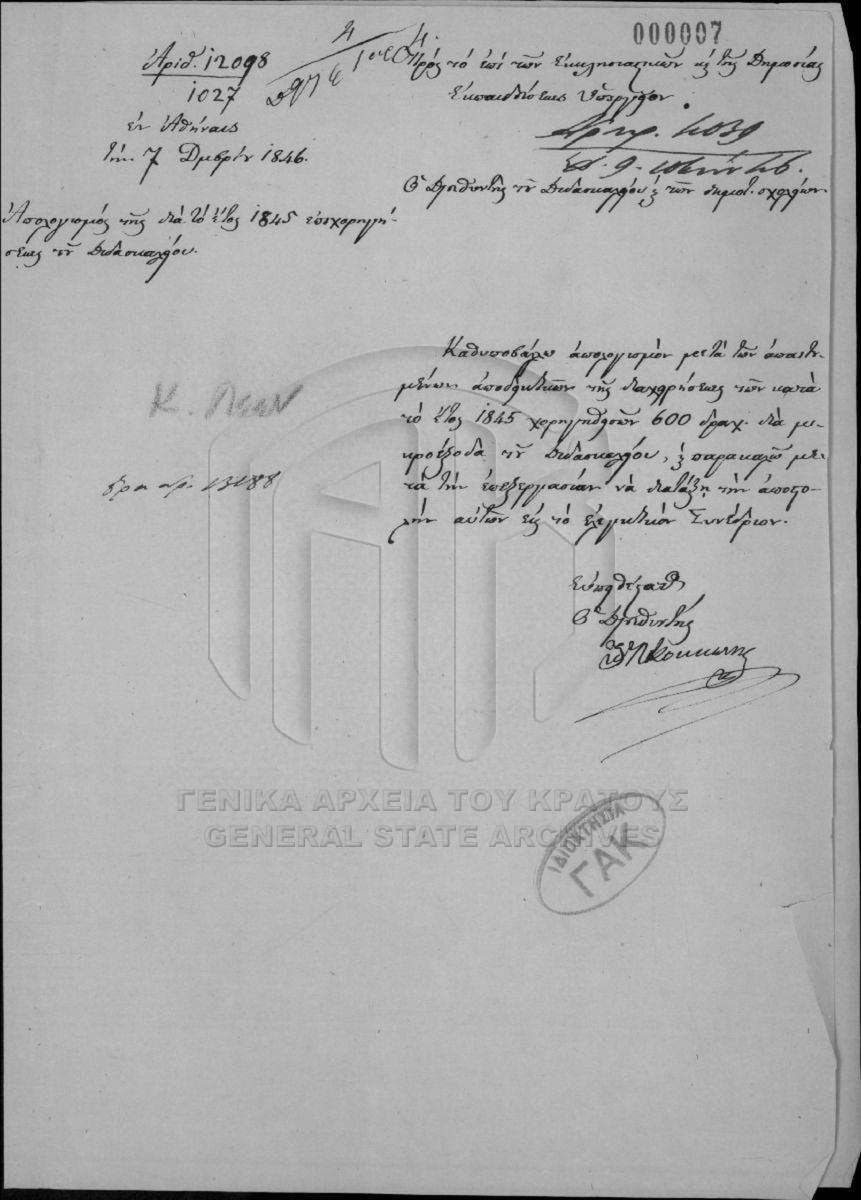 000007
Ἀριθ. 12098
1027
ἐν Ἀθήναις
τὴν 7 Δμβρίου 1846.
Πρὸς τὸ ἐπὶ τῶν Ἐκκλησιαστικῶν κ τῆς Δημοσίας
Ἐκπαιδεύσεως Ὑπουργεῖον
Ὁ Διευθυντὴς τοῦ Διδασκαλείου κ τῶν δημοτ. σχολείων
Ἀπολογισμὸς τῆς διὰ τὸ ἔτος 1845 ἐπιχορηγή-
σεως τοῦ Διδασκαλείου.
Καθυποβάλλω ἀπολογισμὸν μετὰ τῶν ἀπαιτου-
μένων ἀποδεικτικῶν τῆς διαχειρήσεως τῶν κατὰ
τὸ ἔτος 1845 χορηγηθεισῶν 600 δραχ. διὰ μι-
κροέξοδα τοῦ Διδασκαλείου, κ παρακαλῶ με-
τὰ τὴν ἐπεξεργασίαν νὰ διατάξῃ τὴν ἀποστο-
λὴν αὐτῶν εἰς τὸ ἐλεγκτικὸν Συνέδριον.
Κ.
13188
Εὐπειθέστατος
Ὁ Διευθυντὴς
Κοκκώνης
ΓΕΝΙΚΑ ΑΡΧΕΙΑ ΤΟΥ ΚΡΑΤΟΥΣ
GENERAL STATE ARCHIVES
ΙΔΙΟΚΤΗΣΙΑ
ΓΑΚ